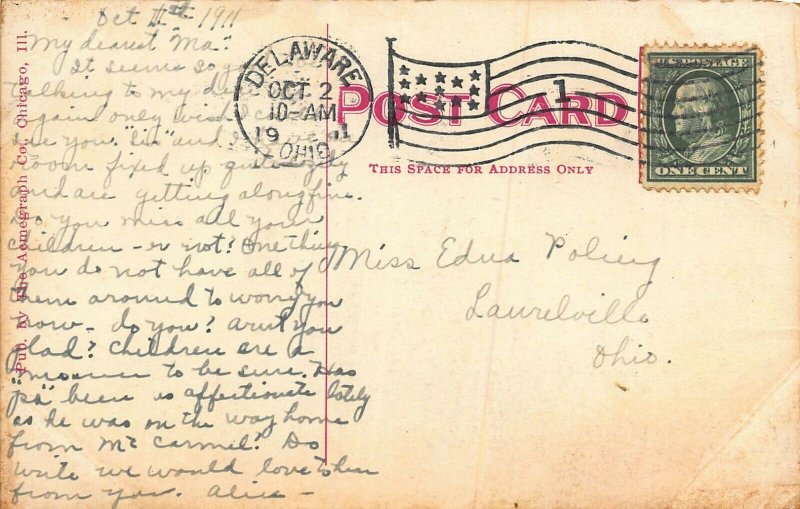 Oct 1st 1911
My dearest "Ma":
It seems so g
talking to my d
again only wish
see you. "Lis" and
room fixed up
and are getting along fine.
Do you miss all your
children - or not? One thing
you do not have all of
them around to worry you
now - do you? Arn't you
glad? Children are a
to be sure. Has
"pa" been as affectionate lately
as he was on the way home
from Mt Carmel? Do
write we would love to hear
from you. Alice -
Pub. by The Acmegraph Co., Chicago, Ill.
DELAWARE
OCT 2
10-AM
19 11
OHIO
1
POST CARD
THIS SPACE FOR ADDRESS ONLY
U.S. POSTAGE
ONE CENT
Miss Edna Poling
Laurelville
Ohio.